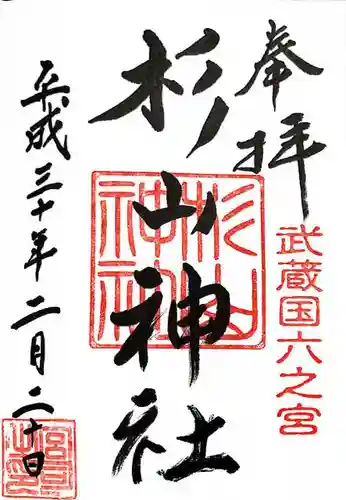 奉拝
武蔵国六之宮
杉山神社
杉山神社
平成三十年二月二十日